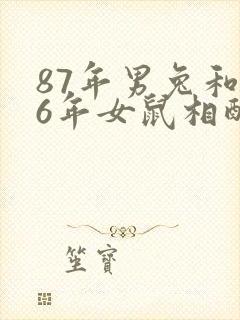 87年男兔和
6年女鼠相配
笙寶